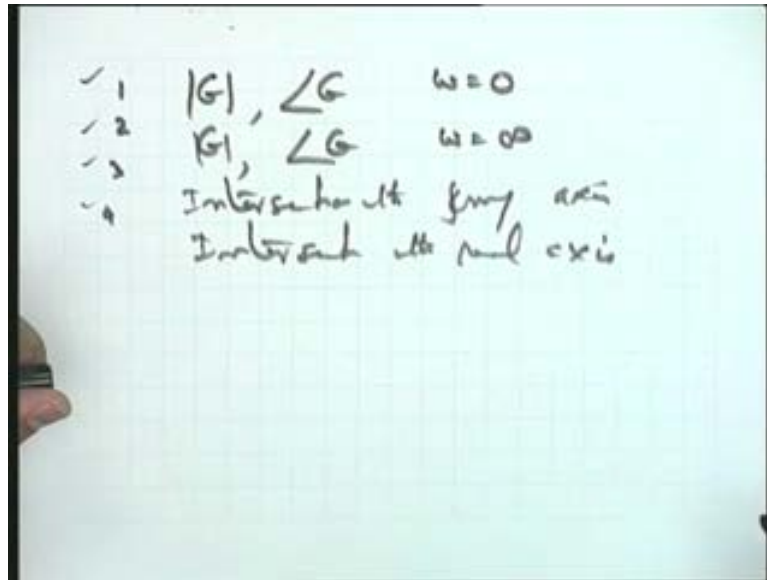 ✓ 1 |G|, ∠G ω = 0
✓ 2 |G|, ∠G ω = ∞
✓ 3 Intersection with axis
✓ 4 Intersect with real axis